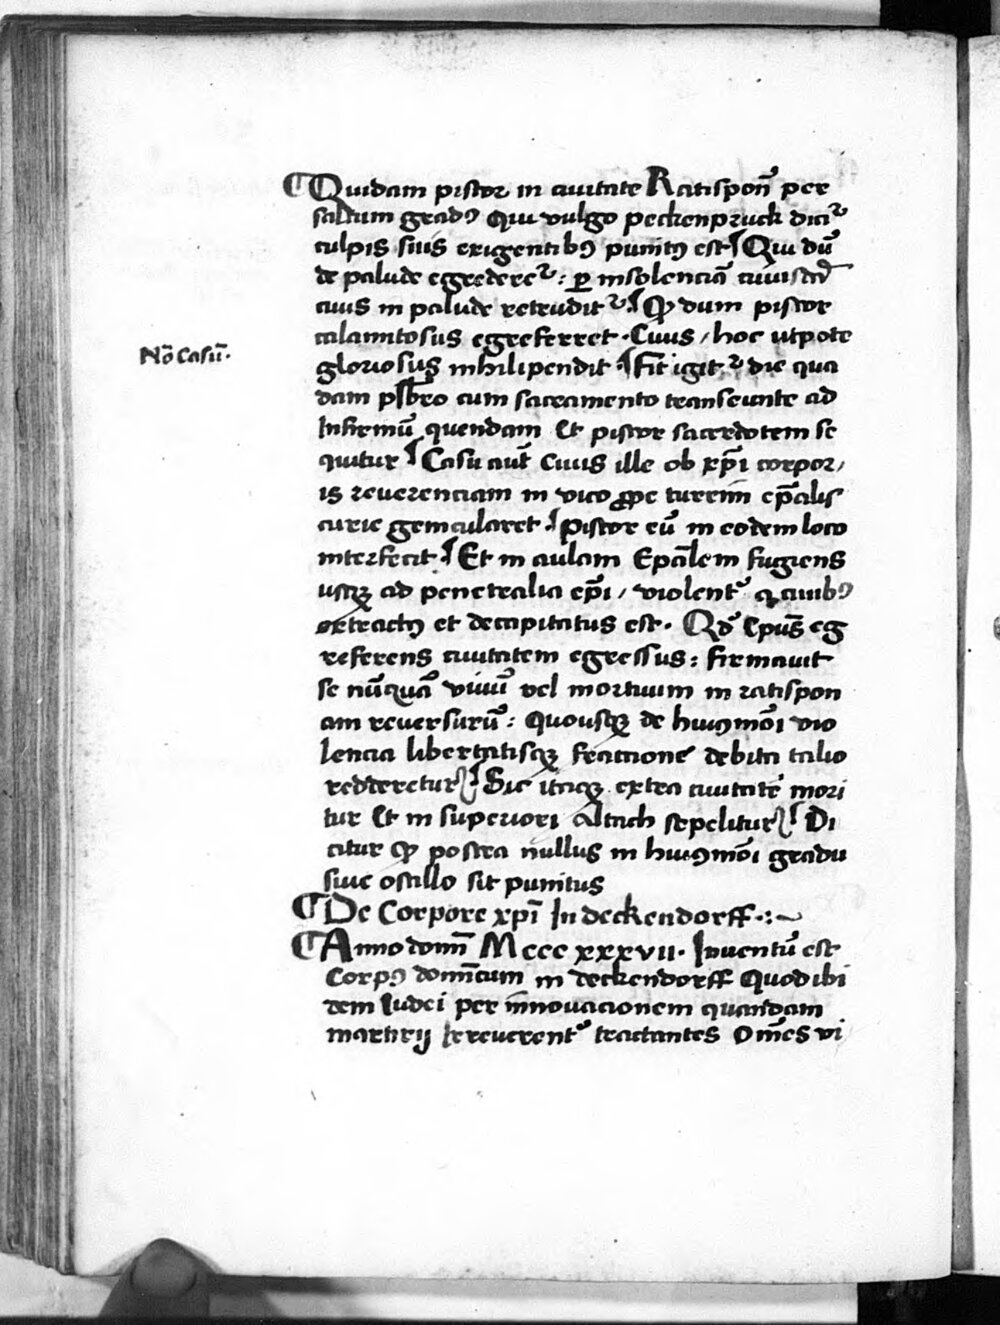 ¶ Quidam pistor in ciuitate Ratisponn̄ per
saltum gradꝰ Qui vulgo peckenpruck dicit᷑
culpis suis exigentibꝰ punitꝰ est Qui dū
de palude egrederet᷑ : ꝑ insolenciā cuiusdā
ciuis in palude retrudit᷑ Qꝫ dum pistor
calamitosus egreferret · Ciuis / hoc utpote
gloriosus nihilipendit · Fit igit᷑ die qua
dam p̄sb̄ro cum sacramento transeunte ad
Infirmū quendam Et pistor sacerdotem se
quitur Casu aut̄ Ciuis ille ob xp̄i corpor/
is reuerenciam in vico ꝓpe turrim ep̄alis
curie genicularet · Pistor eū in eodem loco
interfecit Et in aulam Ep̄alem fugiens
usqꝫ ad penetralia ep̄i / violent᷑ a ciuibꝰ
extractꝰ et decapitatus est · Qd̄ Ep̄us eg
referens ciuitatem egressus : firmauit
se nūquā viuū vel mortuum in ratispon
am reuersurū : quousqꝫ de huiꝰmōi vio
lencia libertatisqꝫ fractione debita talio
redderetur Sic itaqꝫ extra ciuitatē mori
tur Et in superiori Altach sepelitur Di
citur qꝫ postea nullus in huiꝰmōi gradu
siue oscillo sit punitus
¶ De Corpore xp̄i In deckendorff ·:~
¶ Anno domī Mccc xxxvii · Inuentū est
Corpꝰ domīcum in deckendorff Quod ibi
dem Iudei per innouacionem quandam
martirij Irreuerent᷑ tractantes Om̄es vi
Nō Casū ·